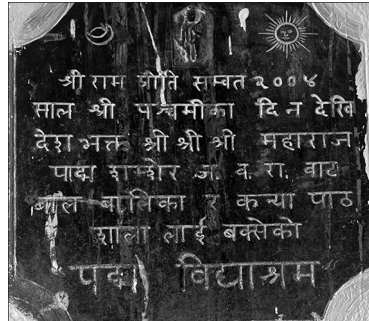 श्री राम प्रीति सम्वत २००४
साल श्री पञ्चमीका दिन देखि
देश भक्त श्री श्री श्री महाराज
पाद्म शम्शेर ज. व. रा. वाट
बाल बालिका र कन्या पाठ
शाला लाई बक्सेको
पद्म विद्याश्रम